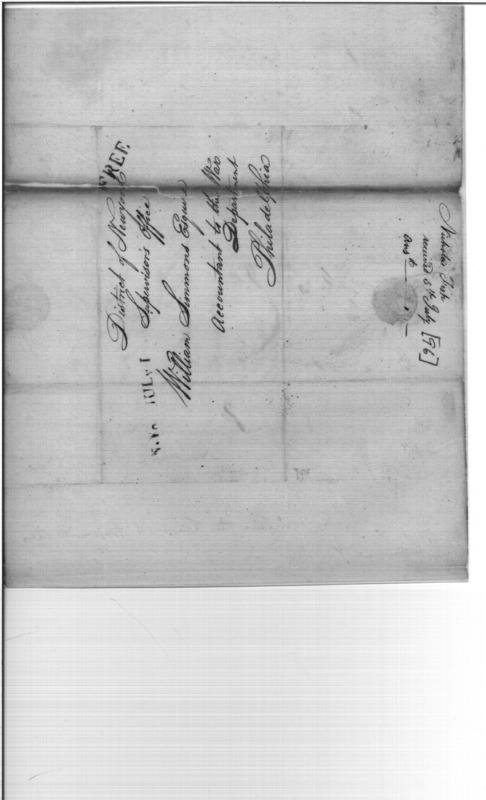 FREE
District of Newyork
Supervisor's Office
JULY 1
William Simmons Esquire
Accountant to the War
Department
Philadelphia
Nicholas Fish
received 6th July [96]
Ans'd